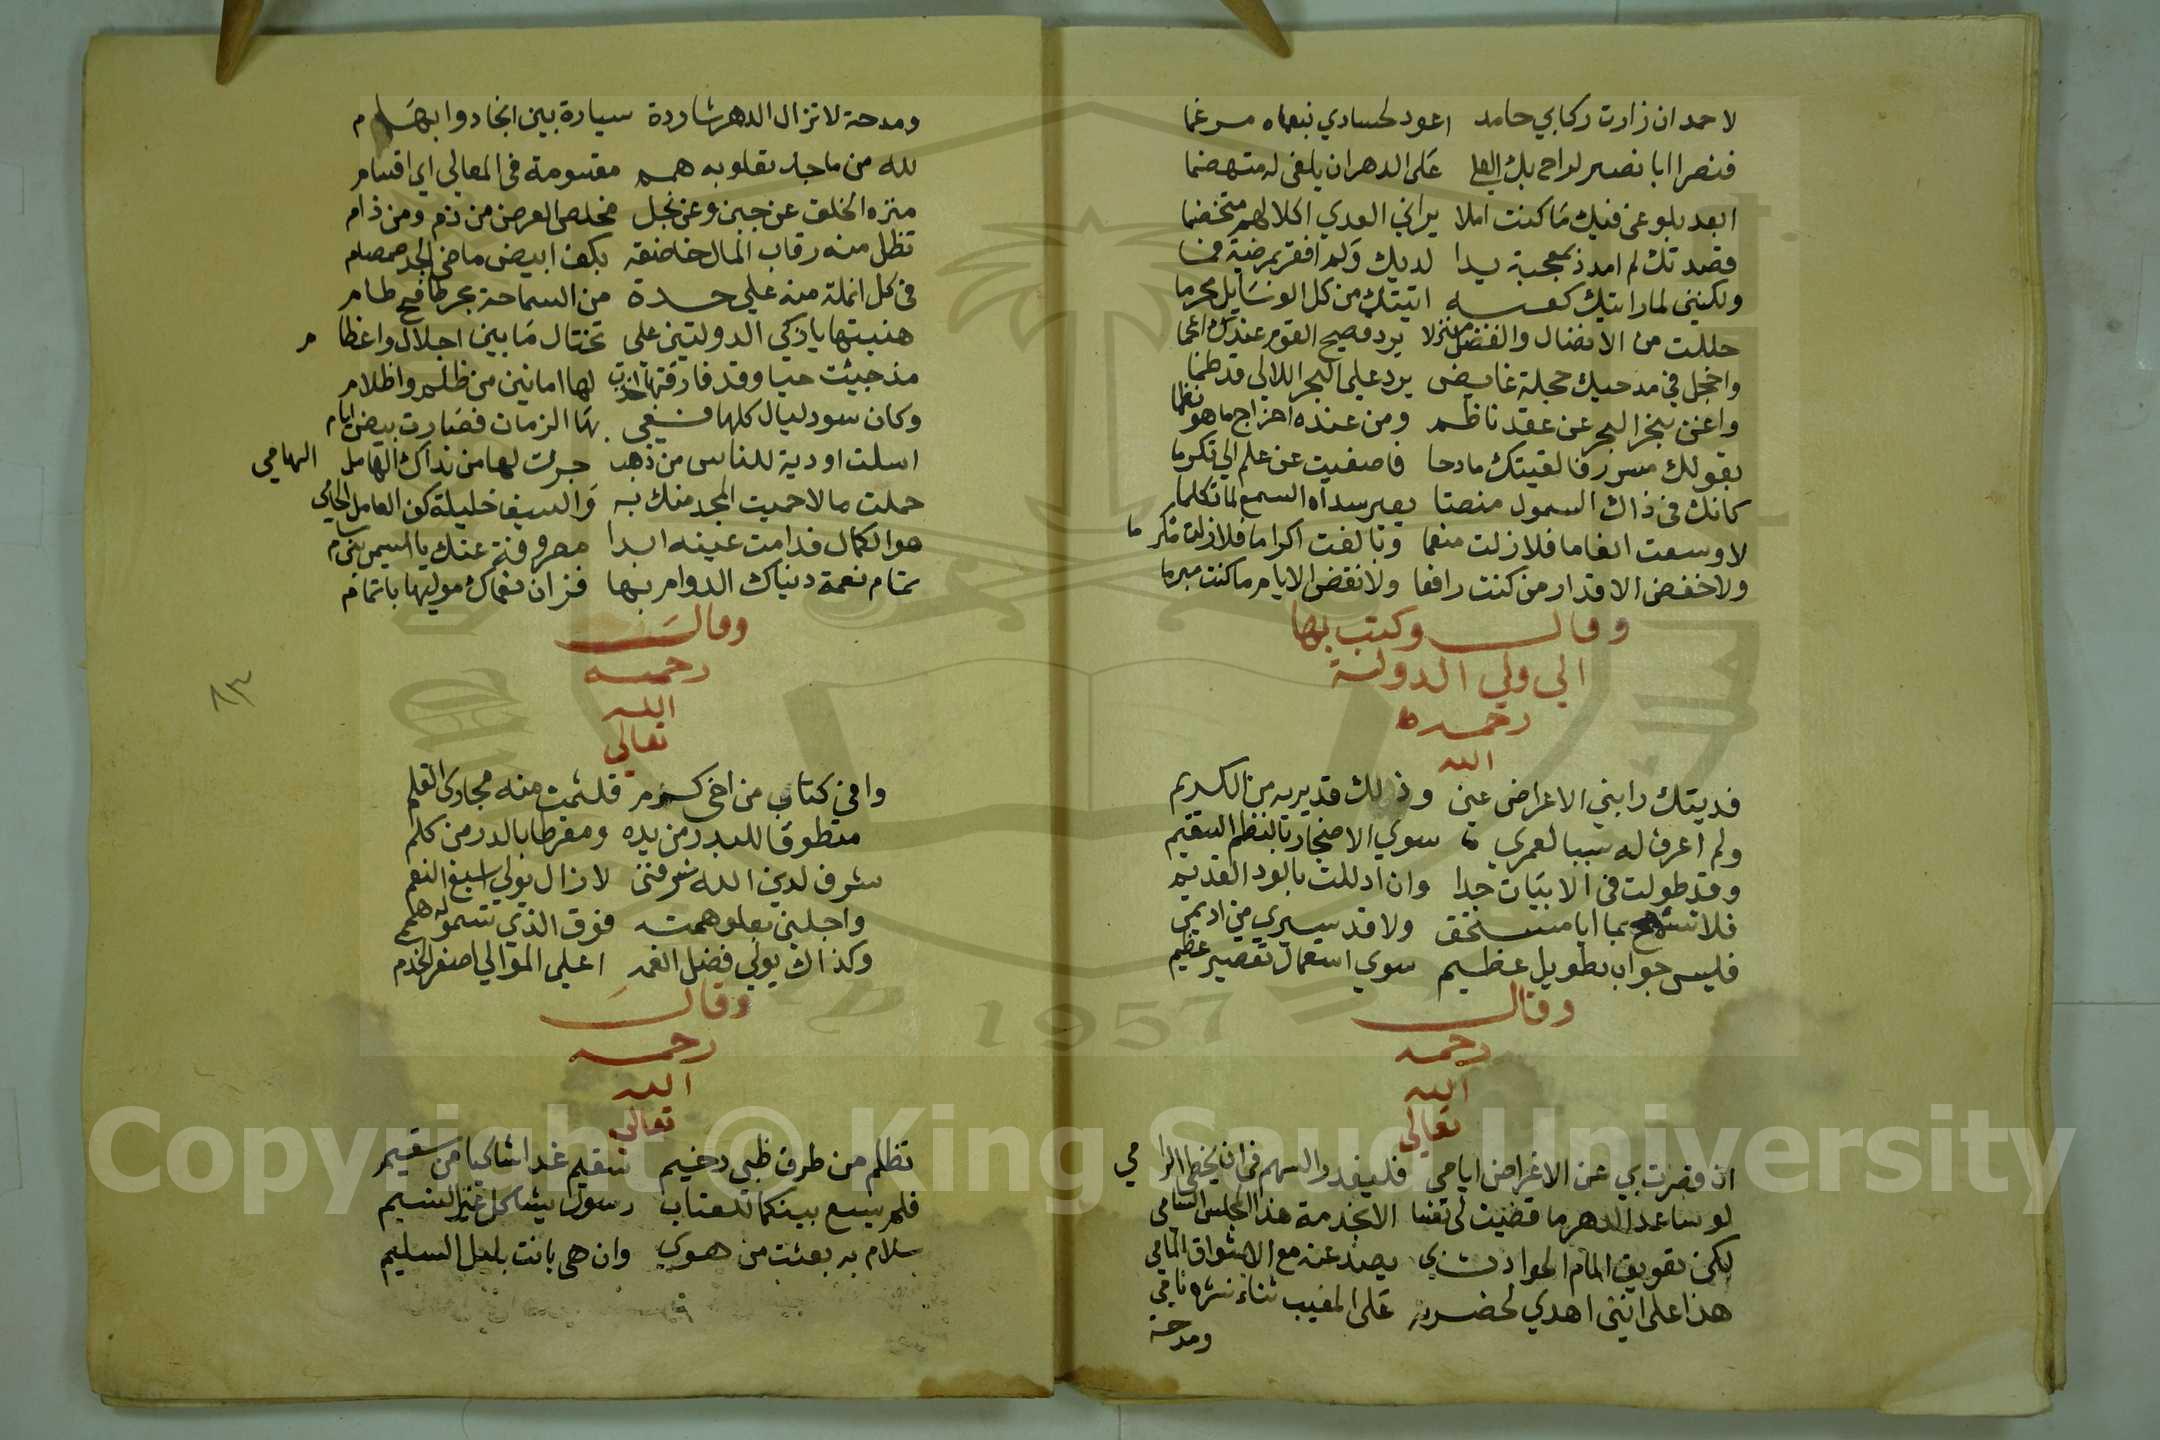 لاحمد ان زارت ركابي حامد اعود لحسادي نبعماه مرغما
فنصرا ابا نصر لراح بك العلى على الدهر ان يلفى له متهضما
ابعد بلوغي فيك ما كنت آملا يراني العدي اكلا لهم متخضما
قصدتك لم امدد بمعجبة يدا لديك ولم افغر بمرضية فما
ولكنني لما رايتك كعبه اتيتك من كل الوسايل محرما
حللت من الافضال والفضل منزلا يرد فصيح القوم عندك اعجما
واخجل في مدحيك خجلة غايض يرد على البحر اللالي قد طما
واغنى بنحر البحر عن عقد ناظم ومن عنده اخراج ما هو نظما
بقولك مسرورا لقيتك مادحا فاصغيت عن علم الي تكرما
كانك في ذاك السمول منصتا يعير سداه السمع لما تكلما
لا وسعت انعاما فلا زلت منعما وبالغت اكراما فلا زلت مكرما
ولا خفض الاقدار من كنت رافعا ولا نقض الايام ما كنت مبرما
وقال وكتب بها
الي ولي الدولة
رحمه
الله
فديتك رابني الاعراض عني وذلك قد يريب من الكريم
ولم اعرف له سببا لعمري سوي الاضجار بالنظم السقيم
وقد طولت في الابيات جدا وان ادللت بالود القديم
فلا بما ايا مستحق ولا قد سيري من اديمي
فليس جواب تطويل عظيم سوي استعمال تقصير عظيم
وقال
رحمه
الله
تعالي
ان قصرت بي عن الاغراض ايامي فليغد والسهم في ان يخطي الرامي
لو ساعد الدهر ما قضيت لي نفسا الا بخدمة هذا المجلس السامي
لكن تعويق المام الحوادث بي يصد عنه مع الاشواق المامي
هذا على انني اهدي لحضرته على المغيب ثناء نشره نامي
ومدحة
ومدحة لا تزال الدهر شاردة سيارة بين انجاد وابهام
لله من ماجد تعلو به همم مقسومة في المعالي اي اقسام
منزه الخلق عن جبن وعن بخل مخلص العرض من ذم ومن ذام
تظل منه رقاب المال خاضقه بكف ابيض ماضي الحد صمصام
في كل انملة منه علي حدة من السماحة بحر طافح طام
هنيتها يا زكي الدولتين على تختال ما بين اجلال واعظام
مذ جيئت حيا وقد فارقتها اخذت لها امانين من ظلم واظلام
وكان سود ليال كلها فسعى بها الزمان فصارت بيض ايام
اسلت اودية للناس من ذهب جرت لها من نداك الهامل الهامي
حملت مالا حميت المجد منك به والسيف خليلة كف العامل الحامي
هو الكمال فدامت عينه ابدا مصروفة عنك يا اسمي بني سام
تمام نعمة دنياك الدوام بها فزان نعماك موليها باتمام
وقال
رحمه
الله
تعالي
٨٣
وافى كتاب من اخي كرم فلثمت منه مجاري القلم
متطوقا للبدر من يده ومقرطا بالدر من كلم
شرف لدين الله شرفني لا زال يولي اسبغ النعم
واجلني بعلو همته فوق الذي تسمو له هممي
وكذاك يولي فضل الغمر اعلى الموالي اصغر الخدم
وقال
رحمه
الله
تعالى
تظلم من طرف ظبي رخيم سقيم غدا شاكيا من سقيم
فلم يسع بينكما للعتاب رسول يشاكل غير النسيم
سلام به بعثت من هوي وان هي بانت بليل السليم
Copyright © King Saud University
1957